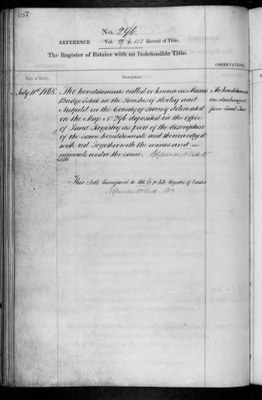 157
No. 296
REFERENCE Vol. 117 Record of Title.
The Register of Estates with an Indefeasible Title.
OBSERVATIONS.
Date of Entry. Description.
July 11th 1865. The hereditaments called or known as
Bridge Field in the Parishes of Horley and The hereditaments
in the County of Surrey delineated are discharged
on the Map No 296 deposited in the Office from Land Tax
of Land Registry as part of the description
of the same hereditaments and thereon edged
with red Together with the mines and
minerals under the same.
This Title transferred to Register of Estates